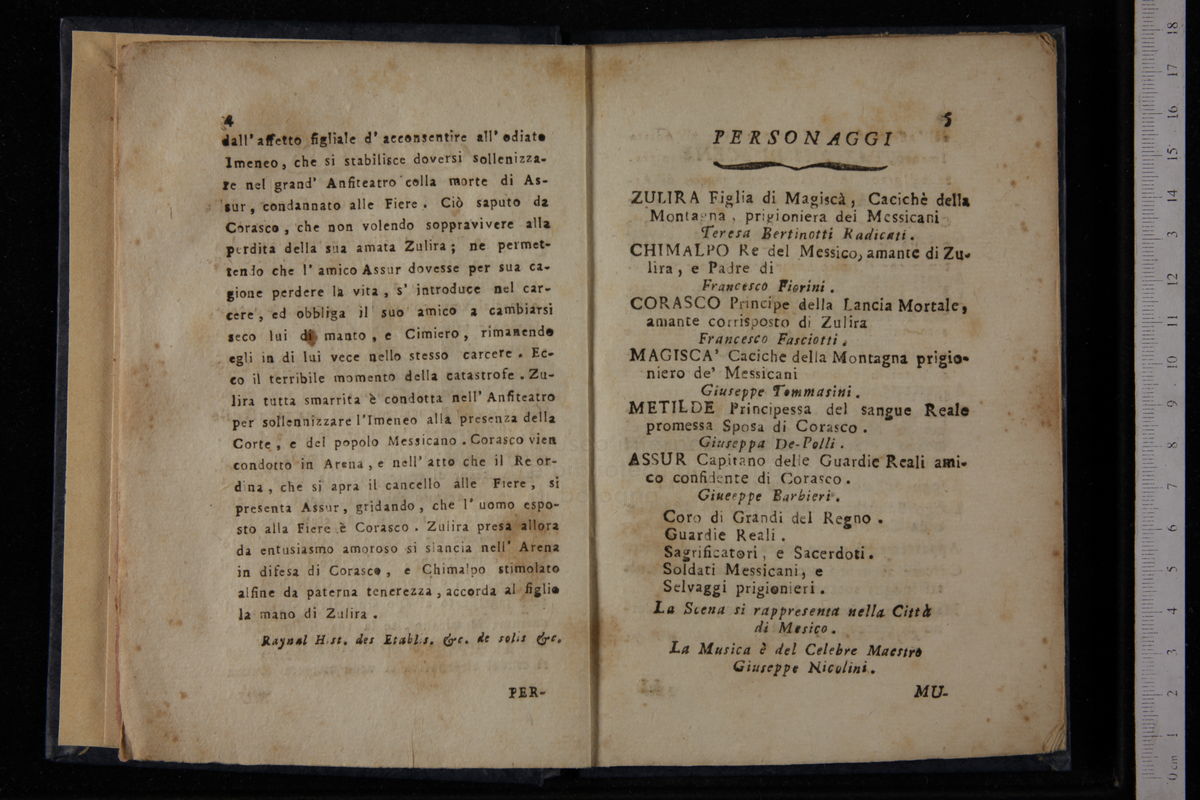 4
dall' affetto figliale d' acconsentire all' odiato
Imeneo, che si stabilisce doversi sollenizza-
re nel grand' Anfiteatro colla morte di As-
sur, condannato alle Fiere. Ciò saputo da
Corasco, che non volendo soppravivere alla
perdita della sua amata Zulira; ne permet-
tendo che l' amico Assur dovesse per sua ca-
gione perdere la vita, s' introduce nel car-
cere, ed obbliga il suo amico a cambiarsi
seco lui di manto, e Cimiero, rimanendo
egli in di lui vece nello stesso carcere. Ec-
co il terribile momento della catastrofe. Zu-
lira tutta smarrita è condotta nell' Anfiteatro
per sollennizzare l'Imeneo alla presenza della
Corte, e del popolo Messicano. Corasco vien
condotto in Arena, e nell' atto che il Re or-
dina, che si apra il cancello alle Fiere, si
presenta Assur, gridando, che l' uomo espo-
sto alla Fiere è Corasco. Zulira presa allora
da entusiasmo amoroso si slancia nell' Arena
in difesa di Corasco, e Chimalpo stimolato
alfine da paterna tenerezza, accorda al figlio
la mano di Zulira.
Raynal Hist. des Etablis. &c. de solis &c.
PER-
5
PERSONAGGI
ZULIRA Figlia di Magiscà, Cacichè della
Montagna, prigioniera dei Messicani
Teresa Bertinotti Radicati.
CHIMALPO Re del Messico, amante di Zu-
lira, e Padre di
Francesco Fiorini.
CORASCO Principe della Lancia Mortale,
amante corrisposto di Zulira
Francesco Fasciotti.
MAGISCA' Caciche della Montagna prigio-
niero de' Messicani
Giuseppe Tommasini.
METILDE Principessa del sangue Reale
promessa Sposa di Corasco.
Giuseppa De-Polli.
ASSUR Capitano delle Guardie Reali ami-
co confidente di Corasco.
Giuseppe Barbieri.
Coro di Grandi del Regno.
Guardie Reali.
Sagrificatori, e Sacerdoti.
Soldati Messicani, e
Selvaggi prigionieri.
La Scena si rappresenta nella Città
di Mesico.
La Musica è del Celebre Maestro
Giuseppe Nicolini.
MU-
0 cm 1 2 3 4 5 6 7 8 9 10 11 12 13 14 15 16 17 18